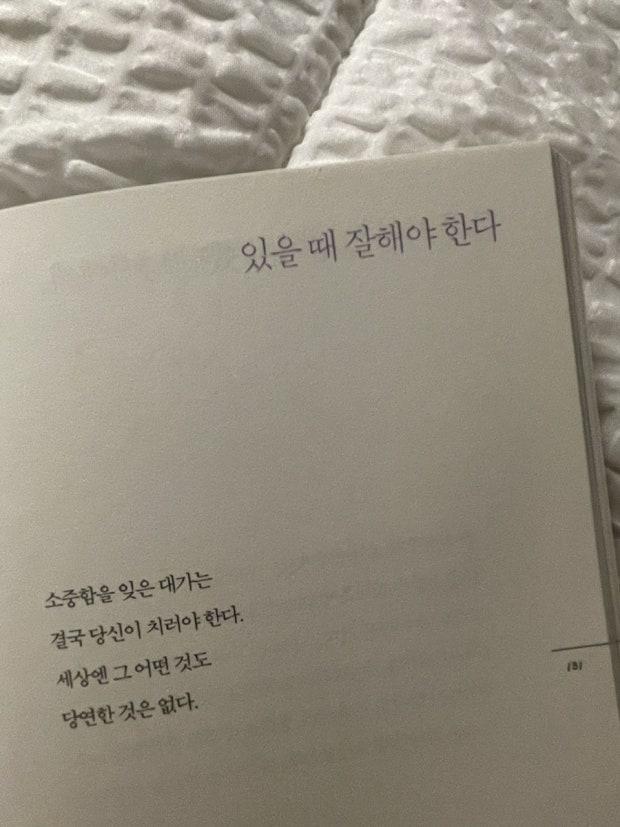 있을 때 잘해야 한다
소중함을 잊은 대가는
결국 당신이 치러야 한다.
세상엔 그 어떤 것도
당연한 것은 없다.
131